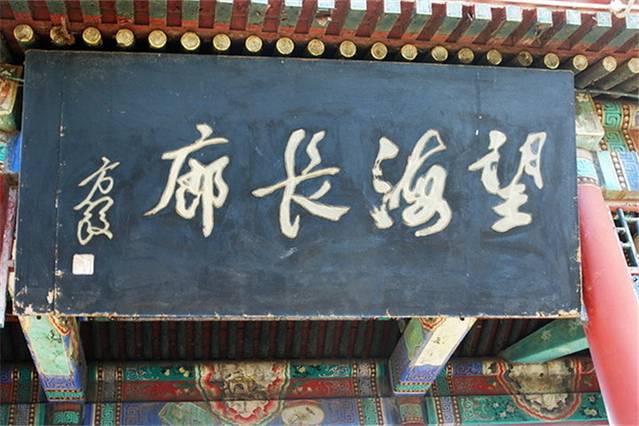 望海长廊
方毅